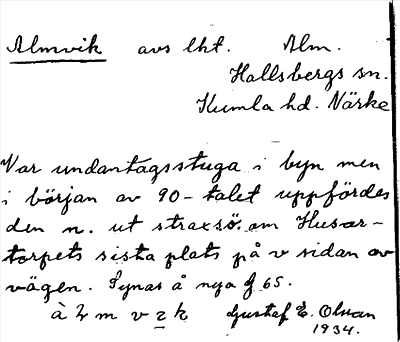 Almvik avs lht. Alm.
Hallsbergs sn.
Kumla hd. Närke
Var undantagsstuga i byn men
i början av 90-talet uppfördes
den n. ut strax sö. om Husar-
torpets sista plats på v sidan av
vägen. Synas å nya G 65.
à m v z k Gustaf E. Olsson
1934.